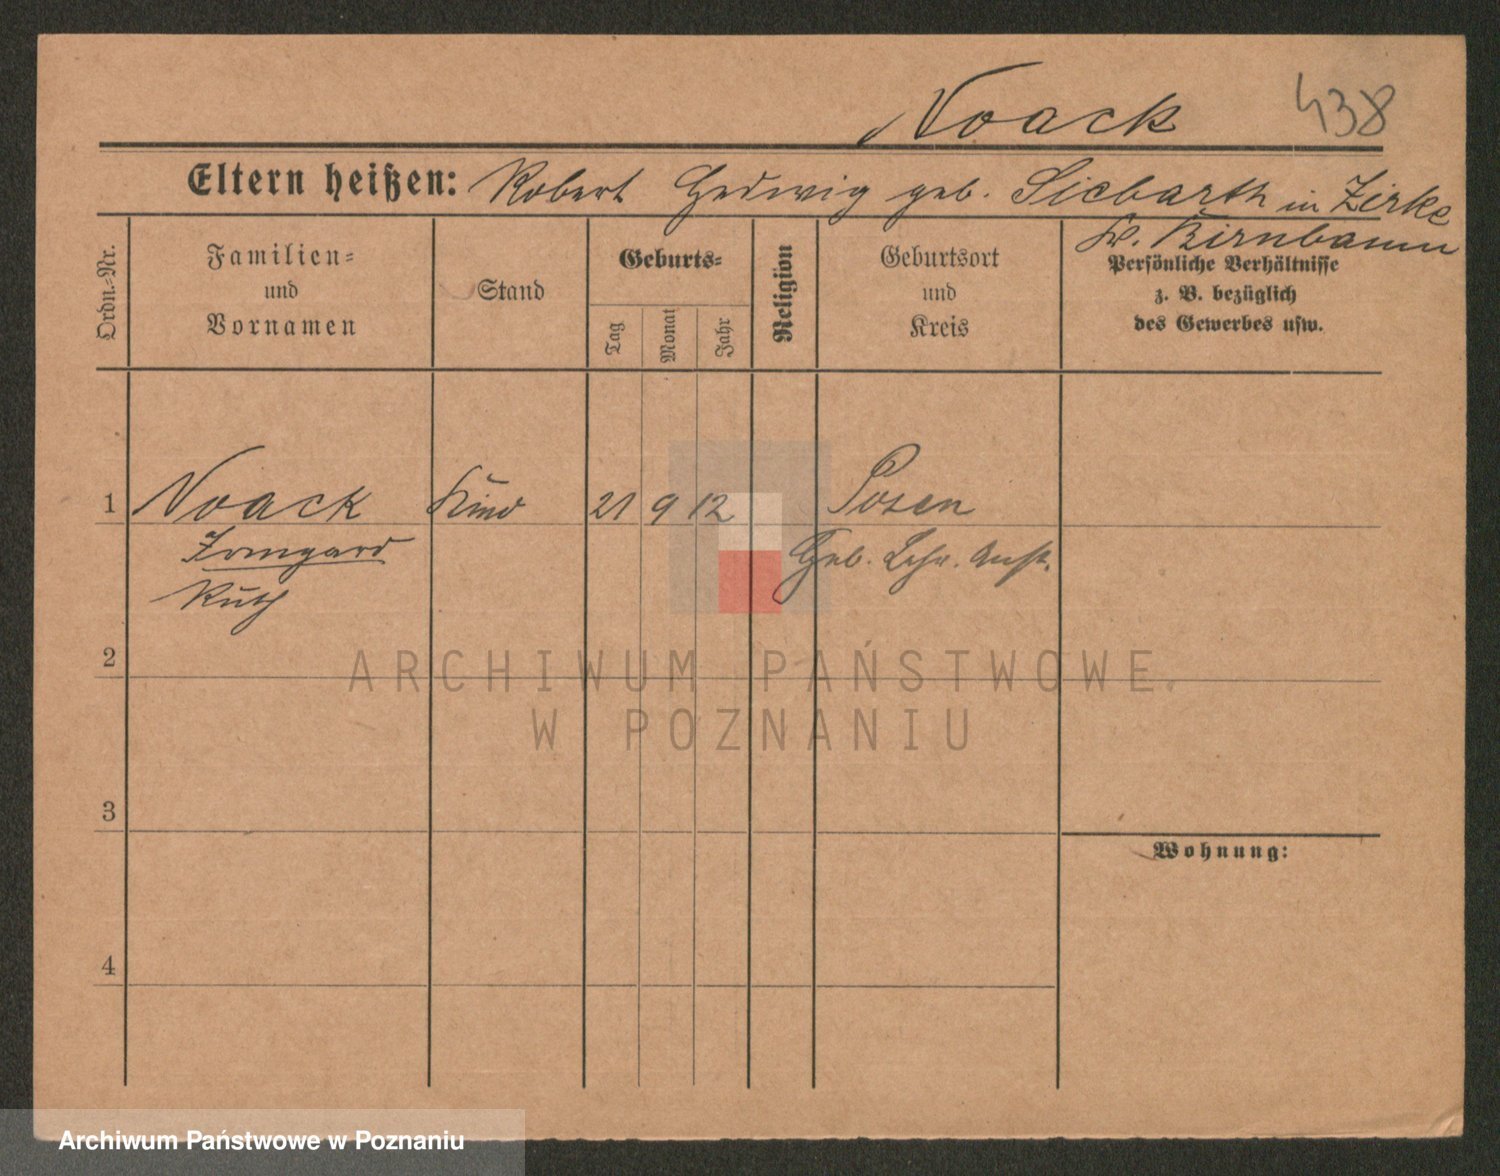 Noack 438
Eltern heißen: Robert Hedwig geb. Siebarth in Zirke
Kr. Birnbaum
Ordn.-Nr.
Familien=
und
Vornamen
Stand
Geburts=
Tag
Monat
Jahr
Religion
Geburtsort
und
Kreis
Persönliche Verhältnisse
z. B. bezüglich
des Gewerbes usw.
1 Noack Kind 21 9 12 Posen
Irmgard Geb. Lehr. Anst.
Ruth
2
3
Wohnung:
4
ARCHIWUM PAŃSTWOWE
W POZNANIU
Archiwum Państwowe w Poznaniu